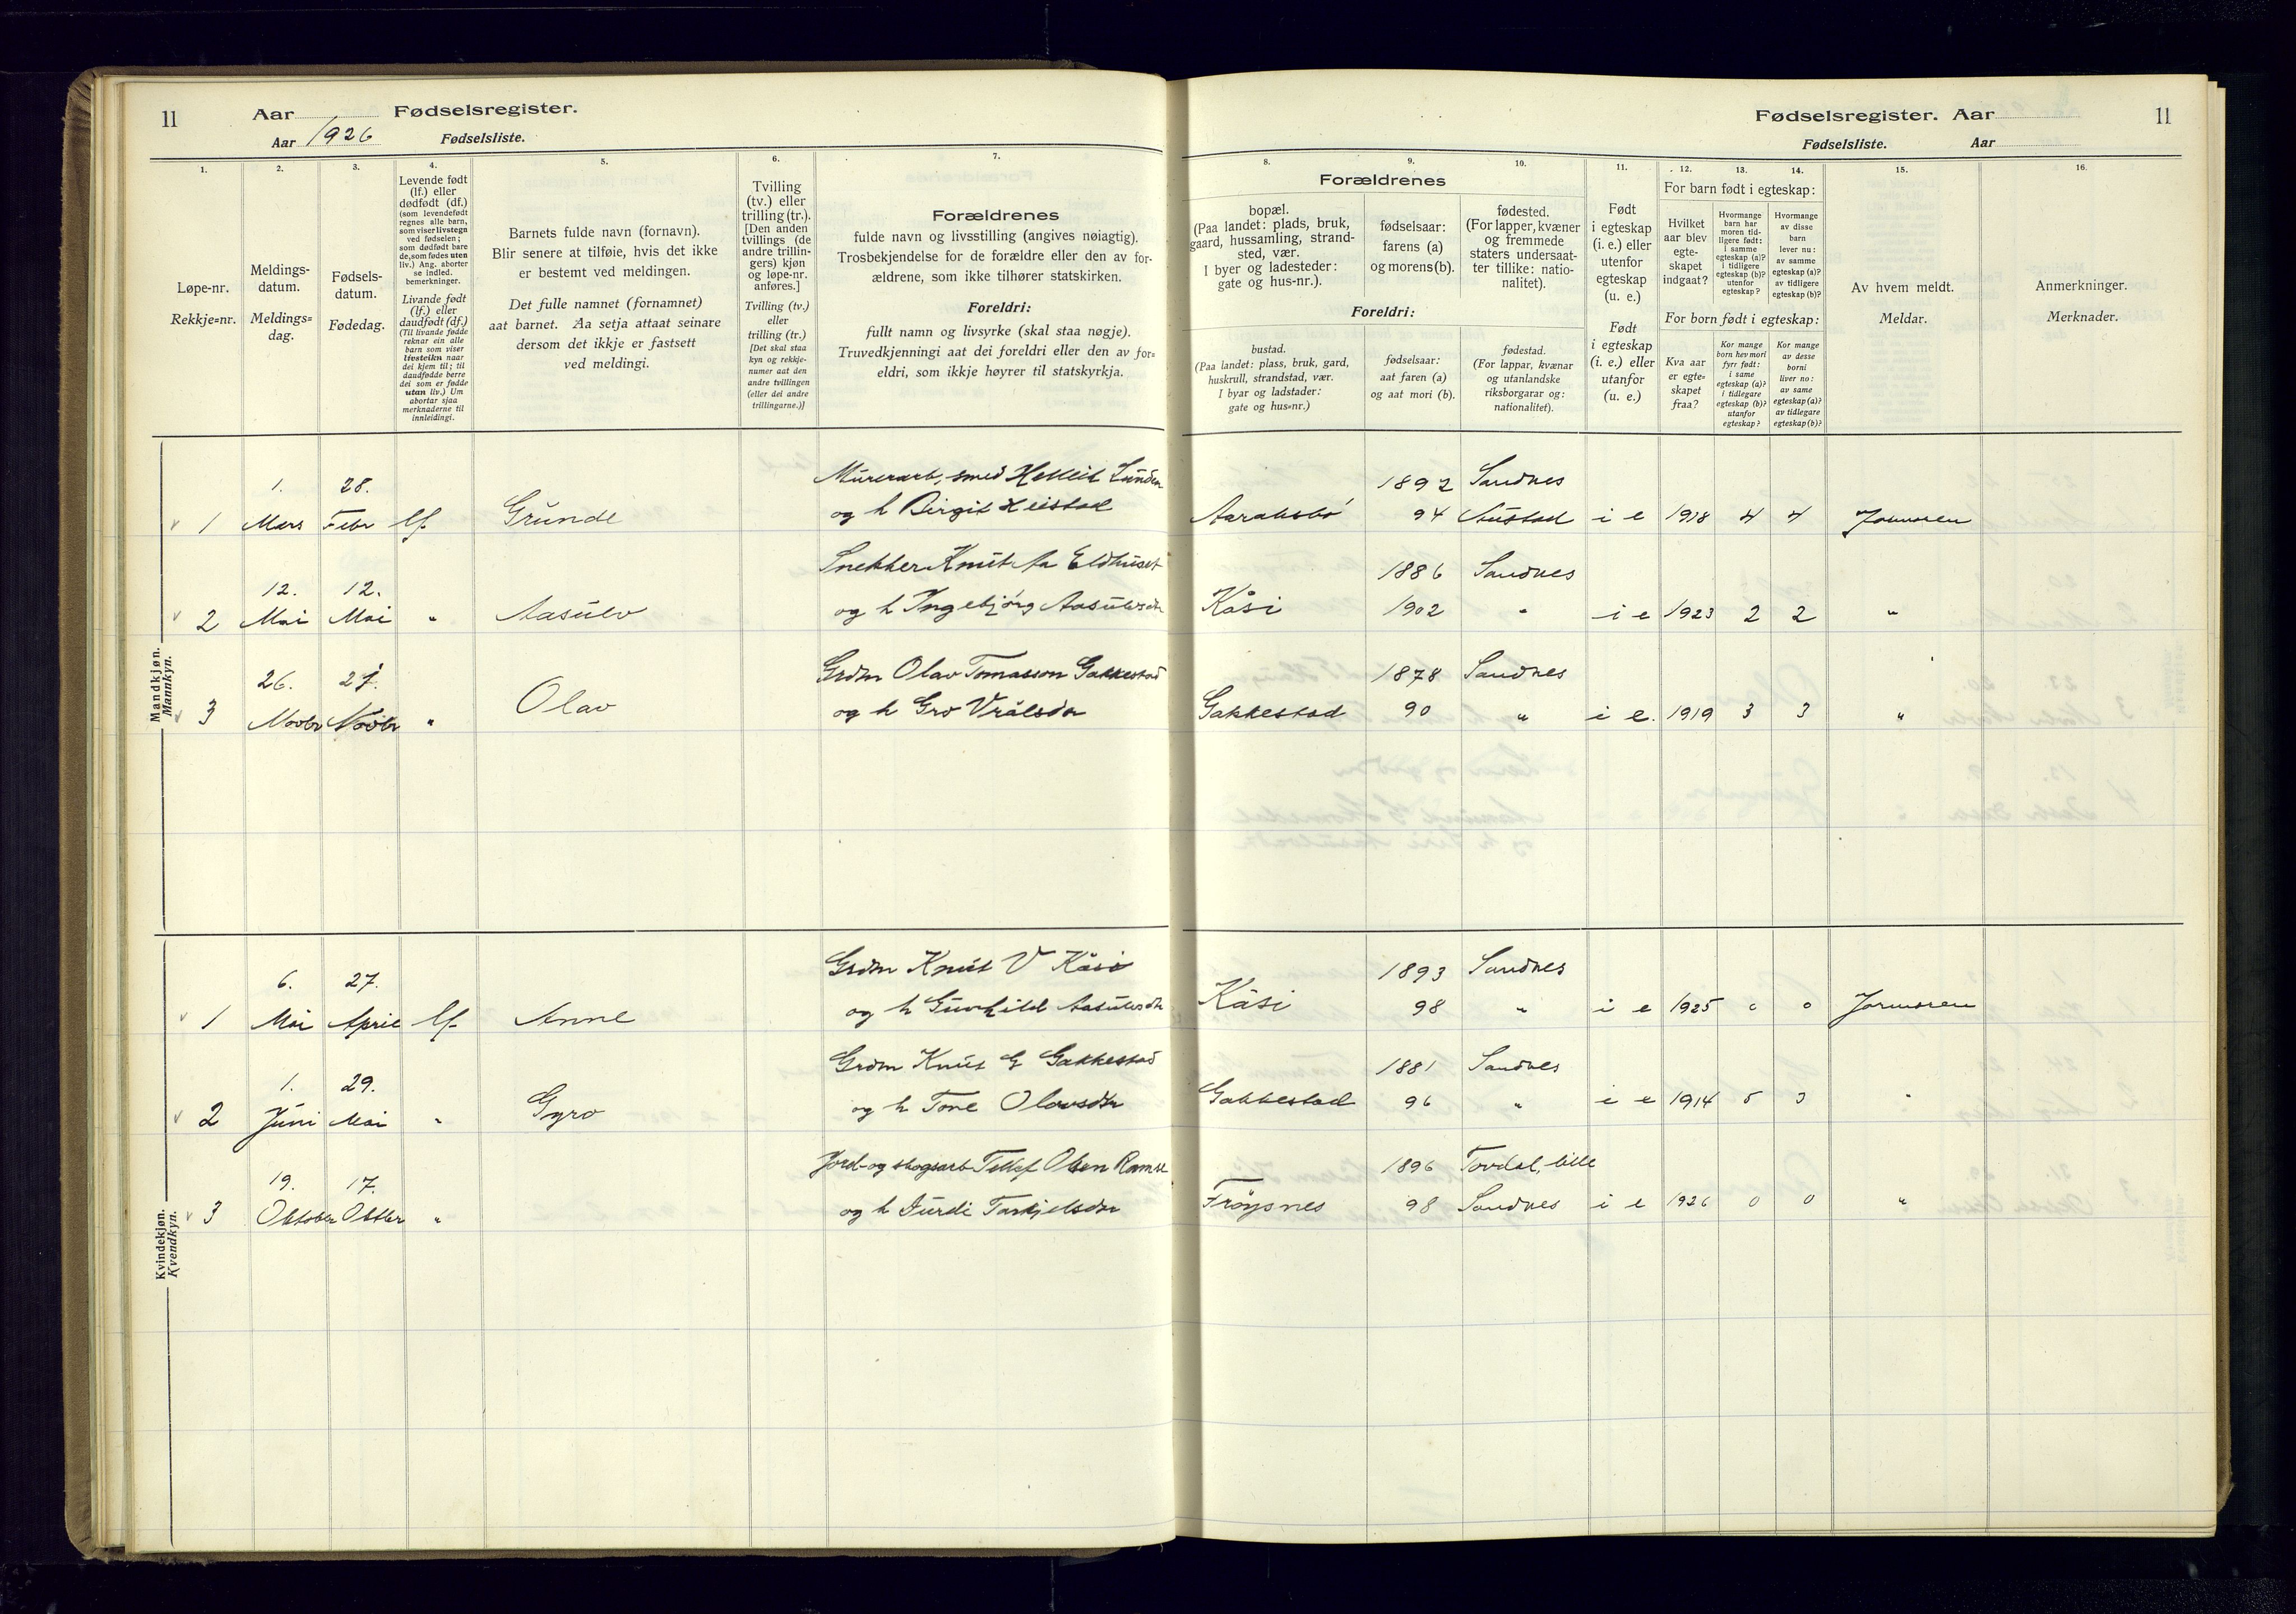 11 Aar Fødselsregister.
Aar 1926 Fødselsliste.
1. 2. 3. 4. 5. 6. 7.
Løpe-nr.
Rekkje=nr.
Meldings-
datum.
Meldings=
dag.
Fødsels-
datum.
Fødedag.
Levende født
(lf.) eller
dødfødt (df.)
(som levendefødt
regnes alle barn,
som viser livstegn
ved fødselen;
som dødfødt bare
de, som fødes uten
liv.) Ang. aborter
se indled.
bemerkninger.
Livande født
(lf.) eller
daudfødt (df.)
(Til livande fødde
reknar ein alle
barn som viser
livsteikn naar
dei kjem til; til
daudfødde berre
dei som er fødde
utan liv.) Um
abortar sjaa
merknaderne til
innleidingi.
Barnets fulde navn (fornavn).
Blir senere at tilføie, hvis det ikke
er bestemt ved meldingen.
Det fulle namnet (fornamnet)
aat barnet. Aa setja attaat seinare
dersom det ikkje er fastsett
ved meldingi.
Tvilling
(tv.) eller
trilling (tr.).
[Den anden
tvillings (de
andre trillin-
gers) kjøn
og løpe-nr.
anføres.]
Tvilling (tv.)
eller
trilling (tr.)
[Det skal staa
kyn og rekkje-
numer aat den
andre tvillingen
(eller dei andre
trillingarne.)]
Forældrenes
fulde navn og livsstilling (angives nøiagtig).
Trosbekjendelse for de forældre eller den av for-
ældrene, som ikke tilhører statskirken.
Foreldri:
fullt namn og livsyrke (skal staa nøgje).
Truvedkjenningi aat dei foreldri eller den av for=
eldri, som ikkje høyrer til statskyrkja.
Mandkjøn.
Mannkyn.
1. 28. Murerarb, smed Helleik Lunden
1 Mars Febr lf. Grunde og h Birgit Heistad
12. 12. Snekker Knut Aa Eldhuset
2 Mai Mai " Aasulv og h Ingebjörg Aasulvsdtr
26. 21. Grdm Olav Tomasson Gakkestad
3 Novbr Novbr " Olav og h Gro Vrålsdtr
Kvindekjøn.
Kvendkyn.
6. 27. Grdm Knut V Kåsi
1 Mai April lf. Anne og h Gunhild Aasulvsdtr
1. 29. Grdm Knut G Gakkestad
2 Juni Mai " Gyro og h Tone Olavsdtr
19. 17. Jord-og skogsarb Tellef Olsen Ramse
3 Oktober Oktbr " og h Jurdi Tarkjelsdtr
Fødselsregister. Aar 11
Fødselsliste. Aar
8. 9. 10. 11. 12. 13. 14. 15. 16.
Forældrenes
bopæl.
(Paa landet: plads, bruk,
gaard, hussamling, strand-
sted, vær.
I byer og ladesteder:
gate og hus-nr.).
fødselsaar:
farens (a)
og morens (b).
fødested.
(For lapper, kvæner
og fremmede
staters undersaat-
ter tillike: natio-
nalitet).
Foreldri:
bustad.
(Paa landet: plass, bruk, gard,
huskrull, strandstad, vær.
I byar og ladstader:
gate og hus=nr.)
fødselsaar:
aat faren (a)
og aat mori (b).
fødestad.
(For lappar, kvænar
og utanlandske
riksborgarar og:
nationalitet).
Født
i egteskap
(i. e.) eller
utenfor
egteskap
(u. e.)
Født
i egteskap
(i. e.) eller
utanfor
(u. e.)
For barn født i egteskap:
Hvilket
aar blev
egte-
skapet
indgaat?
Hvormange
barn har
moren tid-
ligere født:
i samme
egteskap (a)?
i tidligere
egteskap (b)?
utenfor
egteskap?
Hvormange
av disse
barn
lever nu:
av samme
egteskap (a)?
av tidligere
egteskap (b)?
For born født i egteskap:
Kva aar
er egte=
skapet
fraa?
Kor mange
born hev mori
fyrr født:
i same
egteskap (a)?
i tidlegare
egteskap (b)?
utanfor
egteskap?
Kor mange
av desse
borni
liver no:
av same
egteskap (a)?
av tidlegare
egteskap (b)?
Av hvem meldt.
Meldar.
Anmerkninger.
Merknader.
1892 Sandnes
94 Austad i e 1918 4 4 Jormoren
1886 Sandnes
Kåsi 1902 " i e 1923 2 2 "
1878 Sandnes
Gakkestad 90 " i e. 1919 3 3 "
1893 Sandnes
Kåsi 98 " i e 1925 0 0 Jormoren
1881 Sandnes
Gakkestad 96 " i e 1914 5 3 "
1896 Tovdal, lille
Fröysnes 98 Sandnes i e 1926 0 0 "